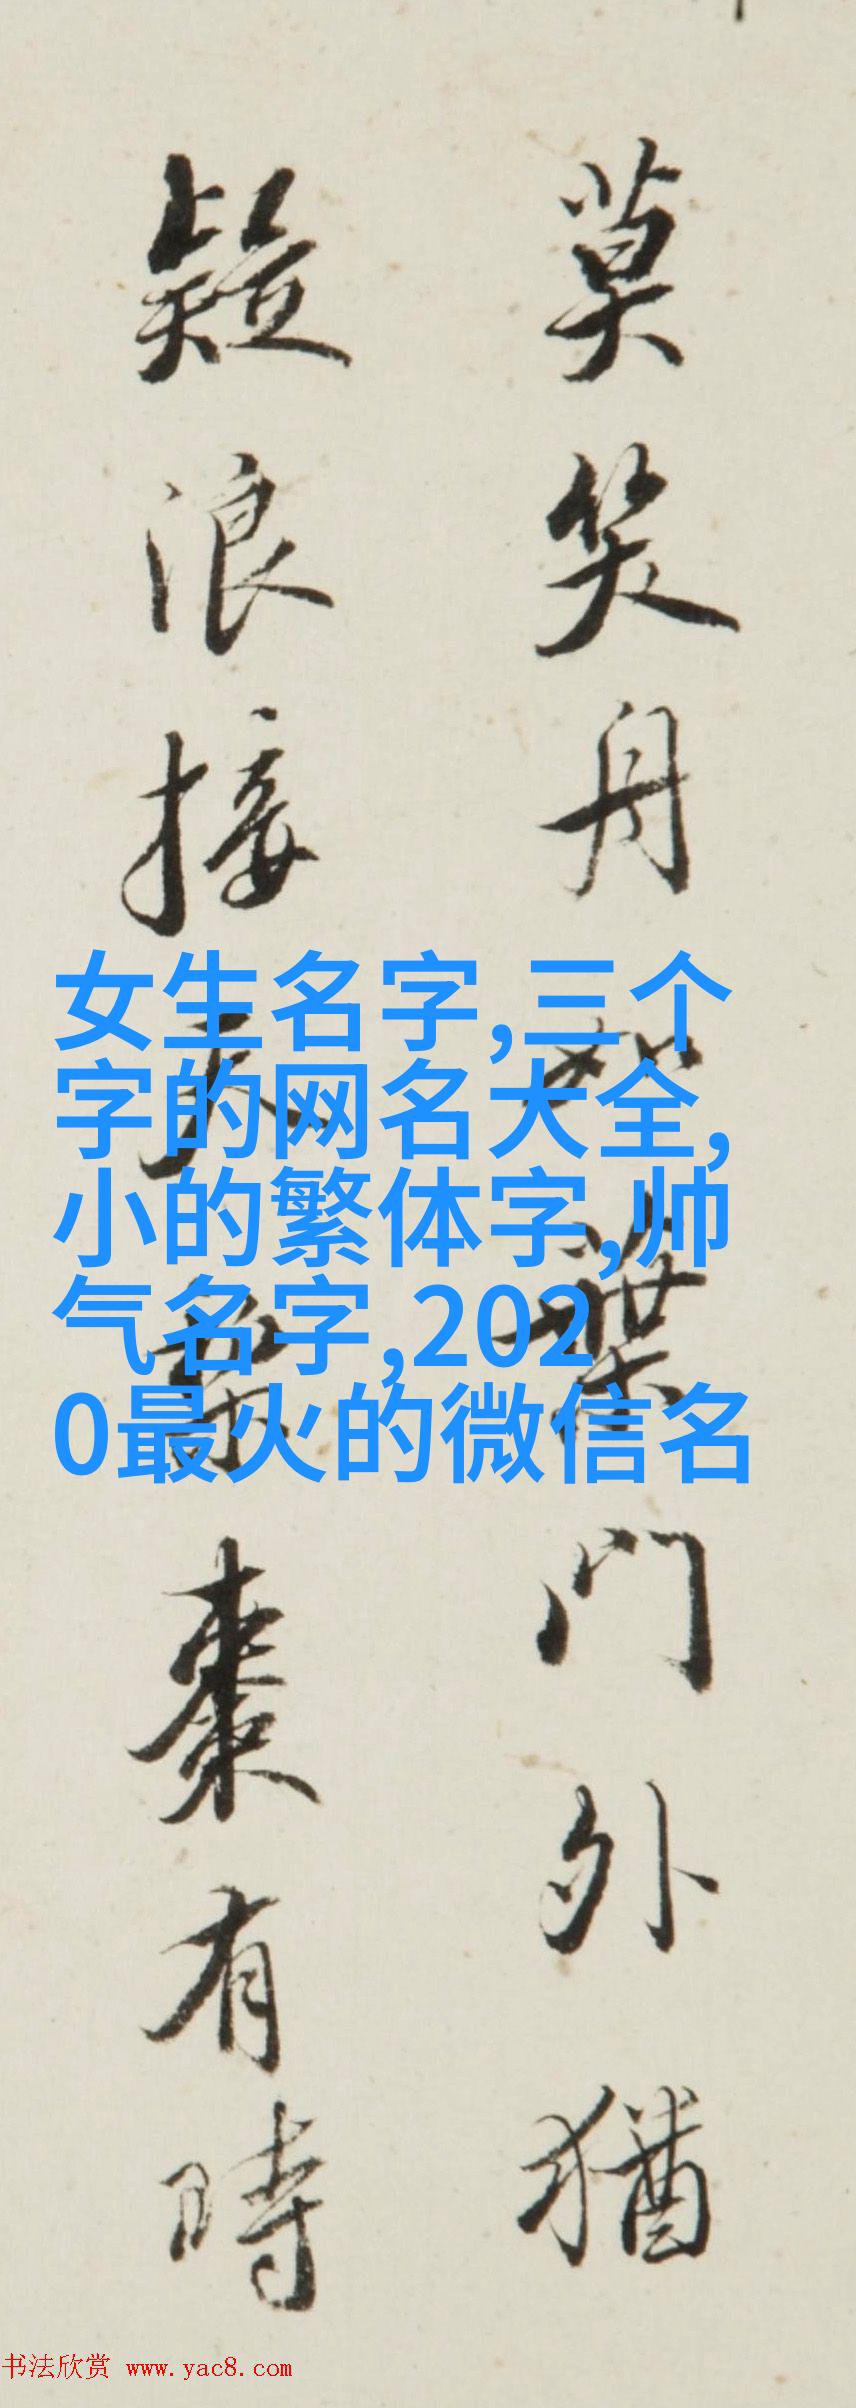 莫笑舟如葉門外猶
疑浪接天粟棗有時
女生名字,三个
字的网名大全,
小的繁体字,帅
气名字,202
0最火的微信名
书法欣赏 www.yac8.com